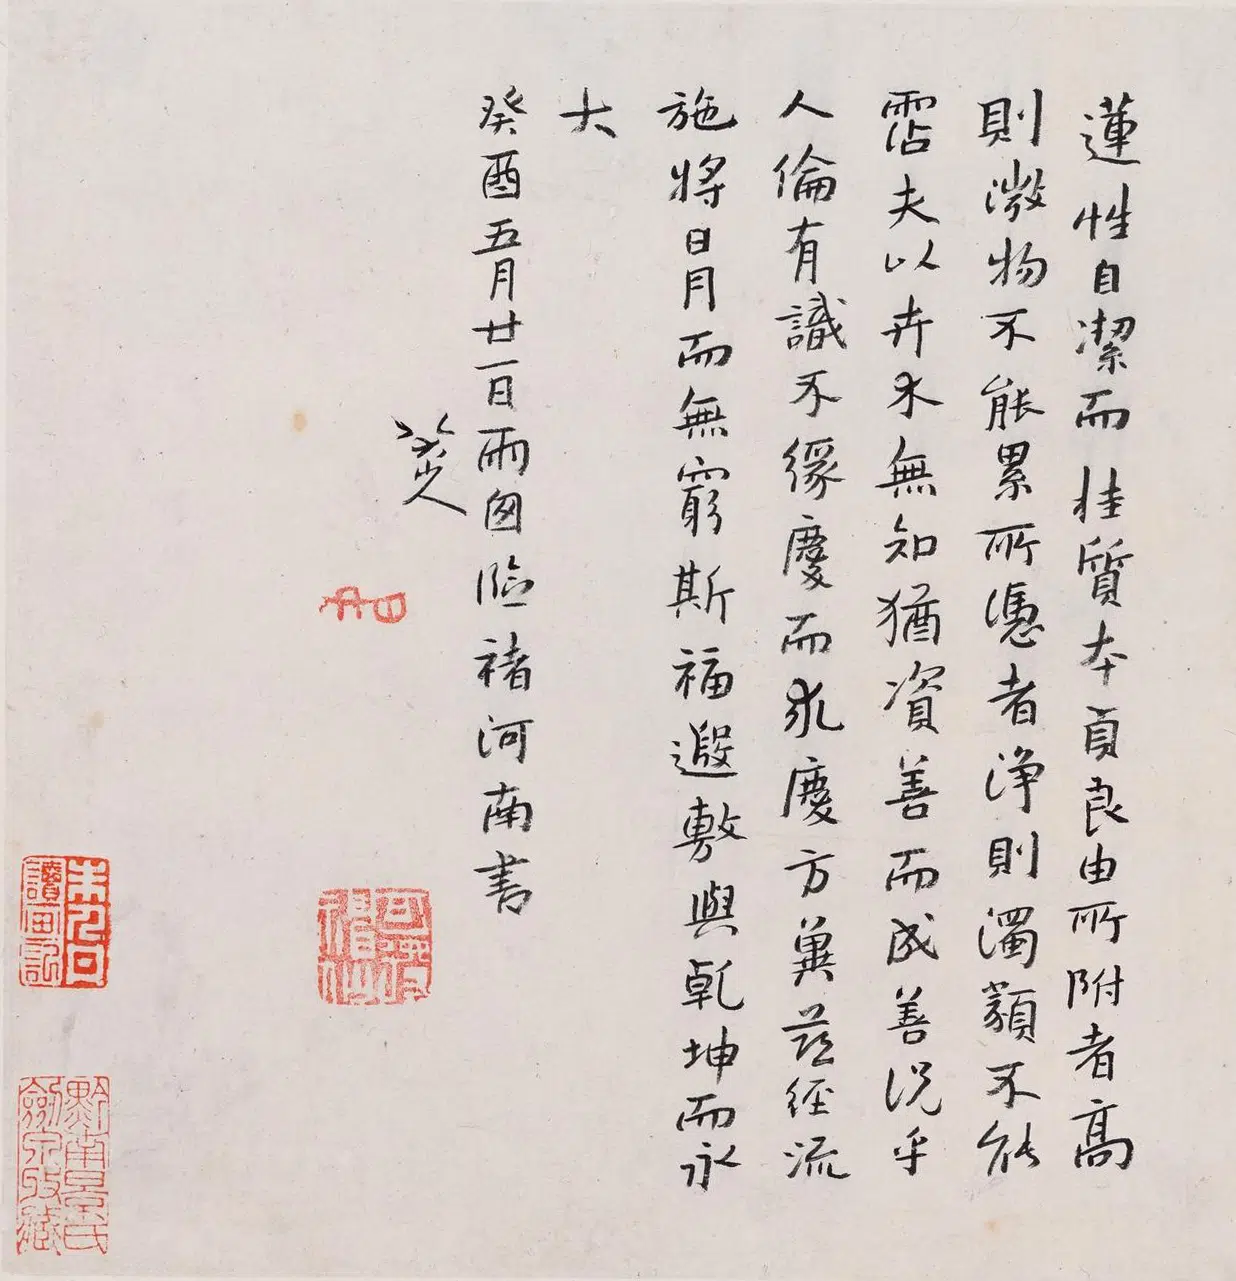 蓮性自潔而桂質本貞良由所附者高
則微物不能累所憑者淨則濁類不能
霑夫以卉木無知猶資善而成善況乎
人倫有識不緣慶而求慶方冀茲經流
施將日月而無窮斯福遐敷與乾坤而永
大
癸酉五月廿一日雨窗臨褚河南書
八大山人
可得神仙
黔南景氏
劍泉收藏